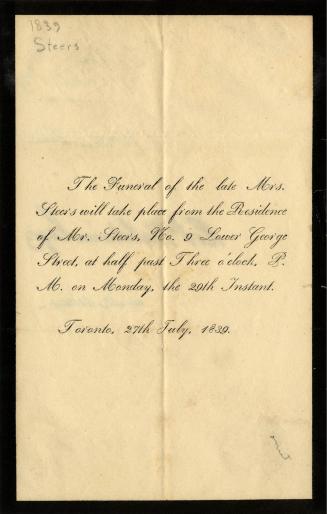 1839
Steers
The Funeral of the late Mrs.
Steers will take place from the Residence
of Mr. Steers, No. 9 Lower George
Street, at half past Three o'clock, P.
M. on Monday, the 29th Instant.
Toronto, 27th July, 1839.